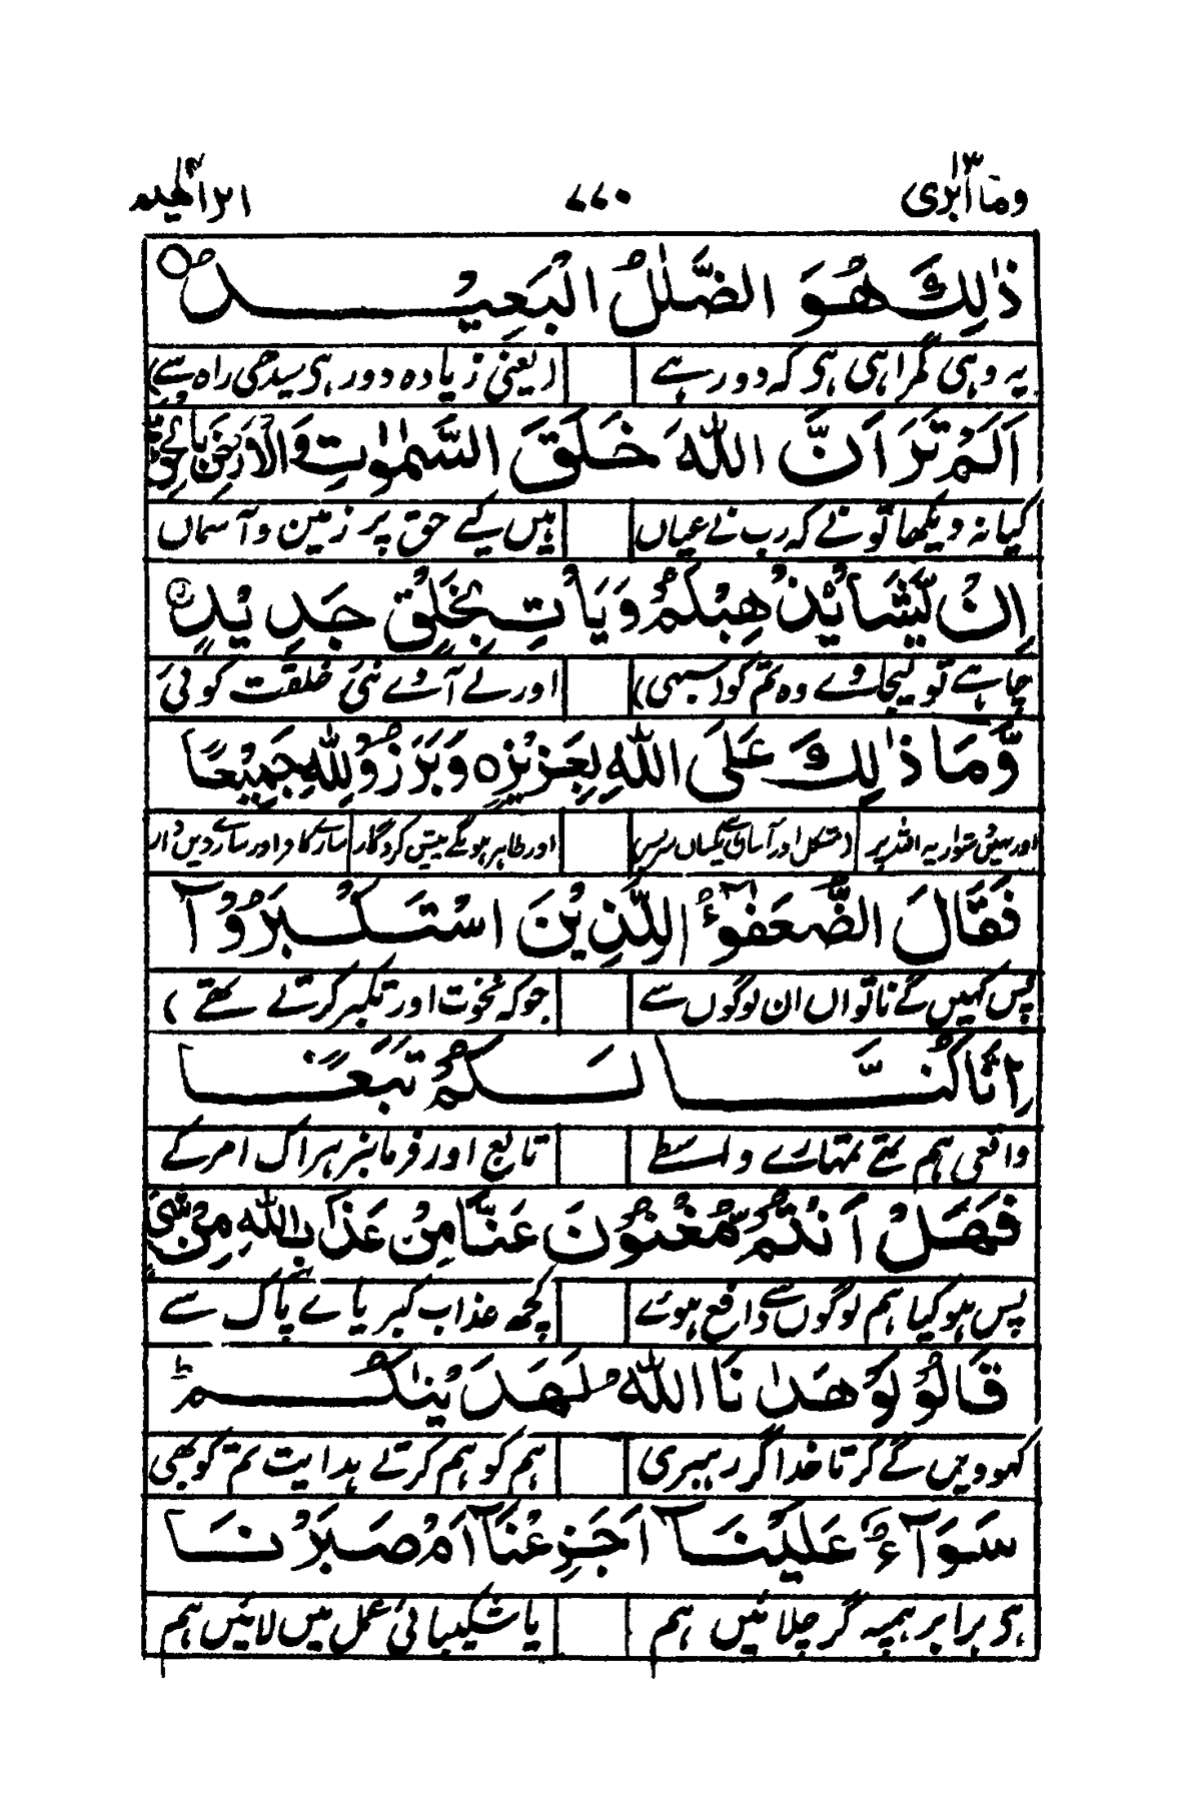 وما ابری ١٣ ٧٧٠ ابراهیم ١٤
ذٰلِكَ هُوَ الضَّلٰلُ الْبَعِيْدُ ○
یہ وہی گمراہی ہی کہ دور ہے (یعنی زیادہ دور ہی سیدھی راہ سے)
اَلَمْ تَرَ اَنَّ اللّٰهَ خَلَقَ السَّمٰوٰتِ وَالْاَرْضَ بِالْحَقِّ
کیا نہ دیکھا تو نے کہ رب نے عیاں ہیں کیے حق پر زمین و آسماں
اِنْ يَّشَاْ يُذْهِبْكُمْ وَيَاْتِ بِخَلْقٍ جَدِيْدٍ
چاہے تو لیجاوے وہ تم کو (سبھی) اور لے آوے نئی خلقت کوئی
وَّمَا ذٰلِكَ عَلَى اللّٰهِ بِعَزِيْزٍ ○ وَبَرَزُوْا لِلّٰهِ جَمِيْعًا
اور نہیں دشوار یہ اللہ پر (مشکل اور آسانی یکساں اور ظاہر ہونگے پیش کردگار سارے کافر اور سارے دیں دار
فَقَالَ الضُّعَفٰٓؤُا لِلَّذِيْنَ اسْتَكْبَرُوْٓا
پس کہیں گے ناتواں ان لوگوں سے جو کہ نخوت اور تکبر کرتے تھے )
اِنَّا كُنَّا لَكُمْ تَبَعًا
واقعی ہم تھے تمہارے واسطے تابع اور فرمانبر ہر اک امر کے
فَهَلْ اَنْتُمْ مُّغْنُوْنَ عَنَّا مِنْ عَذَابِ اللّٰهِ مِنْ شَيْءٍ
پس ہو کیا ہم لوگوں سے دافع ہوئے کچھ عذاب کبریائے پاک سے
قَالُوْا لَوْ هَدٰىنَا اللّٰهُ لَهَدَيْنٰكُمْ ؕ
کہوویں گے کرتا خدا گر رہبری ہم کو ہم کرتے ہدایت تم کو بھی
سَوَآءٌ عَلَيْنَآ اَجَزِعْنَآ اَمْ صَبَرْنَا
ہی برابر ہمپہ گر چلائیں ہم یا شکیبائی عمل میں لائیں ہم